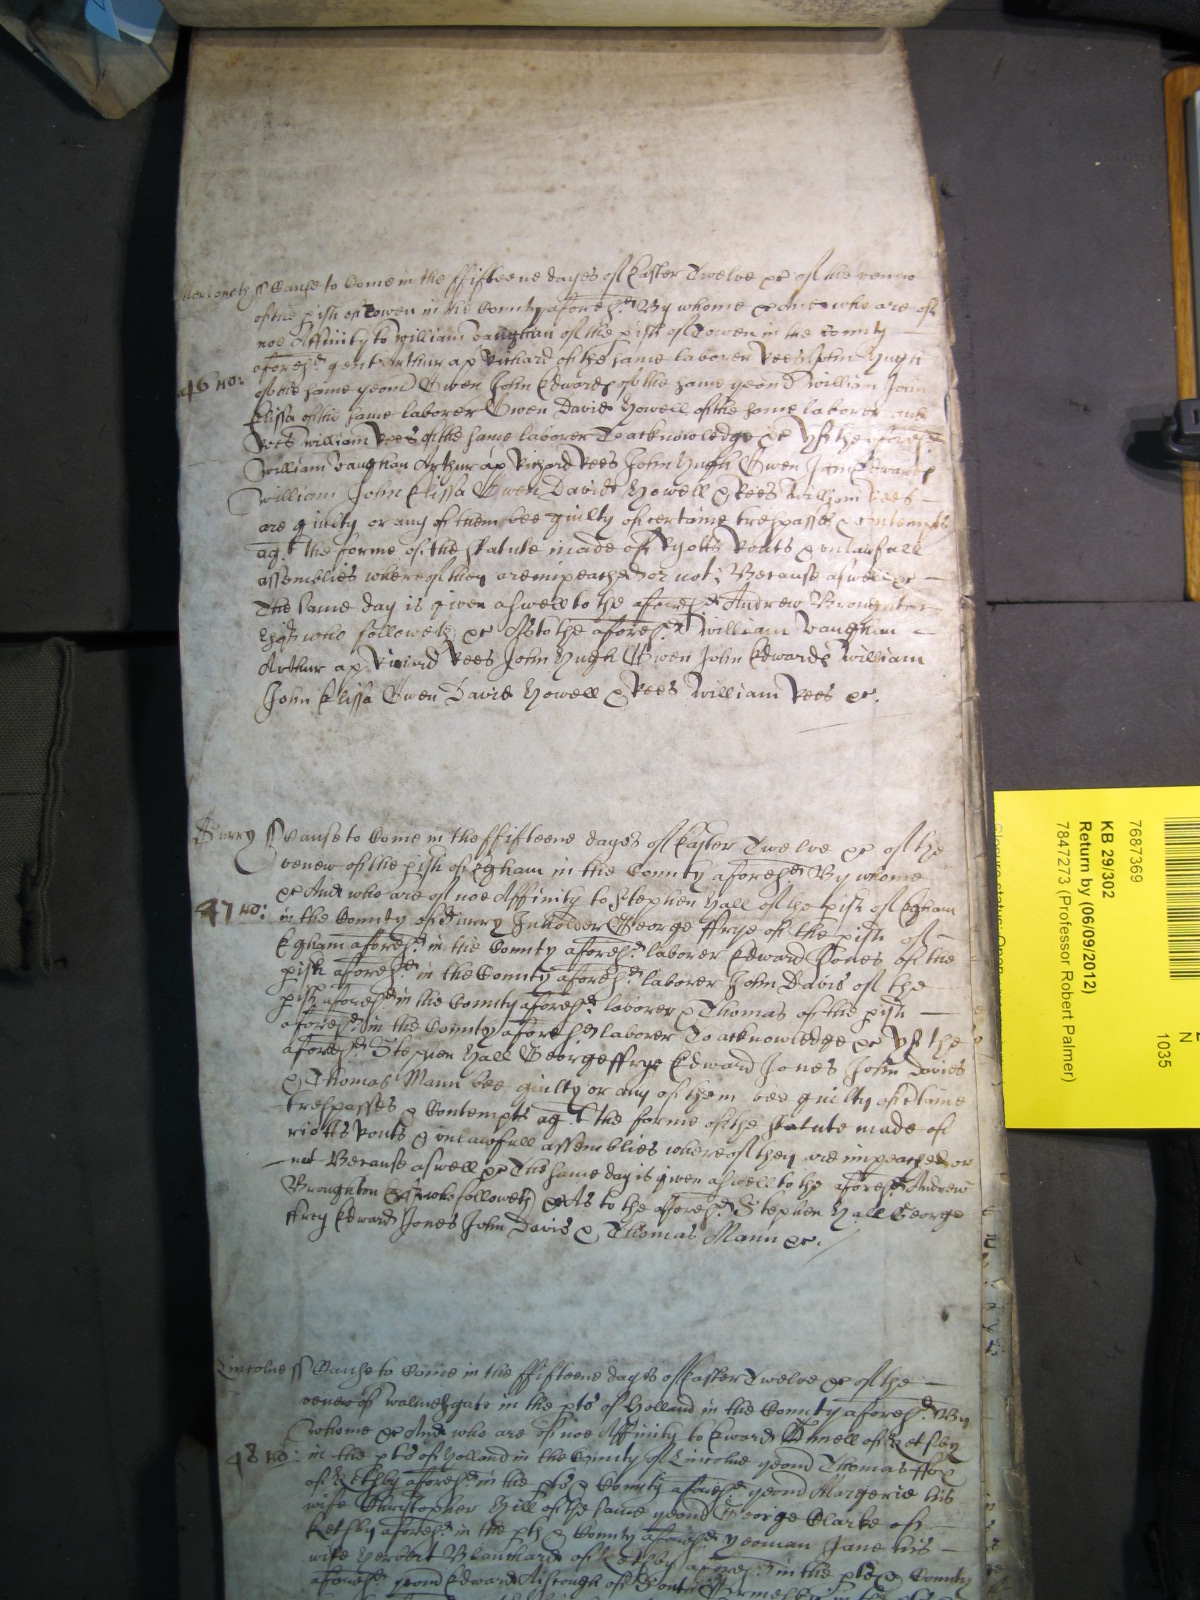 Merioneth ss Cause to Come in the ffifteene dayes of Easter Twelve &c of the venew
of the pish of Towen in the County aforesd By whome &c And who are of
noe Affinity to William Vaughan of the pish of Towen in the County
aforesd gent Arthur ap Richard of the same laborer Rees John Hugh
46 no: of the same yeom Owen John Edwards of the same yeom William John
Elissa of the same laborer Owen David Howell of the same laborer and
Rees William Rees of the same laborer To acknowledge &c Yf the aforesd
William Vaughan Arthur ap Richard Rees John Hugh Owen John Edwards
William John Elissa Owen David Howell & Rees William Rees
are guilty or any of them bee guilty of certaine trespasses & contempts
agt the forme of the statute made of Ryotts Routs & unlawfull
assemblies whereof they are impeached or not; Because aswell &c
The same day is given aswell to the aforesd Andrew Broughton
Esqr who followeth &c As to the aforesd William Vaughan
Arthur ap Richard Rees John Hugh Owen John Edwards William
John Elissa Owen David Howell & Rees William Rees &c.
Surry ss Cause to Come in the ffifteene dayes of Easter Twelve &c of the
venew of the pish of Egham in the County aforesd By whome
&c And who are of noe Affinity to Stephen Hall of the pish of Egham
47 no: in the County of Surry Inholder George ffrye of the pish of
Egham aforesd in the County aforesd laborer Edward Jones of the
pish aforesd in the County aforesd laborer John Davis of the
pish aforesd in the County aforesd laborer & Thomas of the pish
aforesd in the County aforesd laborer To acknowledge &c Yf the
aforesd Stephen Hall George ffrye Edward Jones John Davies
& Thomas Mann bee guilty or any of them bee guilty of certaine
trespasses & Contempts agt the forme of the statute made of
riotts Routs & unlawfull assemblies whereof they are impeached or
not Because aswell &c The same day is given aswell to the aforesd Andrew
Broughton Esqr who followeth &c As to the aforesd Stephen Hall George
ffrey Edward Jones John Davis & Thomas Mann &c.
Lincolne ss Cause to Come in the ffifteene dayes of Easter Twelve &c of the
venew of in the pts of Holland in the County aforesd By
whome &c And who are of noe Affinity to Edward of
48 no: in the pts of Holland in the County of Lincolne yeom Thomas
of aforesd in the pts & County aforesd yeom Margerie his
wife Christopher Hill of the same yeom George Clarke of
aforesd in the pts & County aforesd yeoman Jane his
wife Herbert Blanchard of aforesd in the pts & County
aforesd yeom Edward of
7687369
KB 29/302
Return by (06/09/2012)
7847273 (Professor Robert Palmer)
Closure status: Open
N
1035